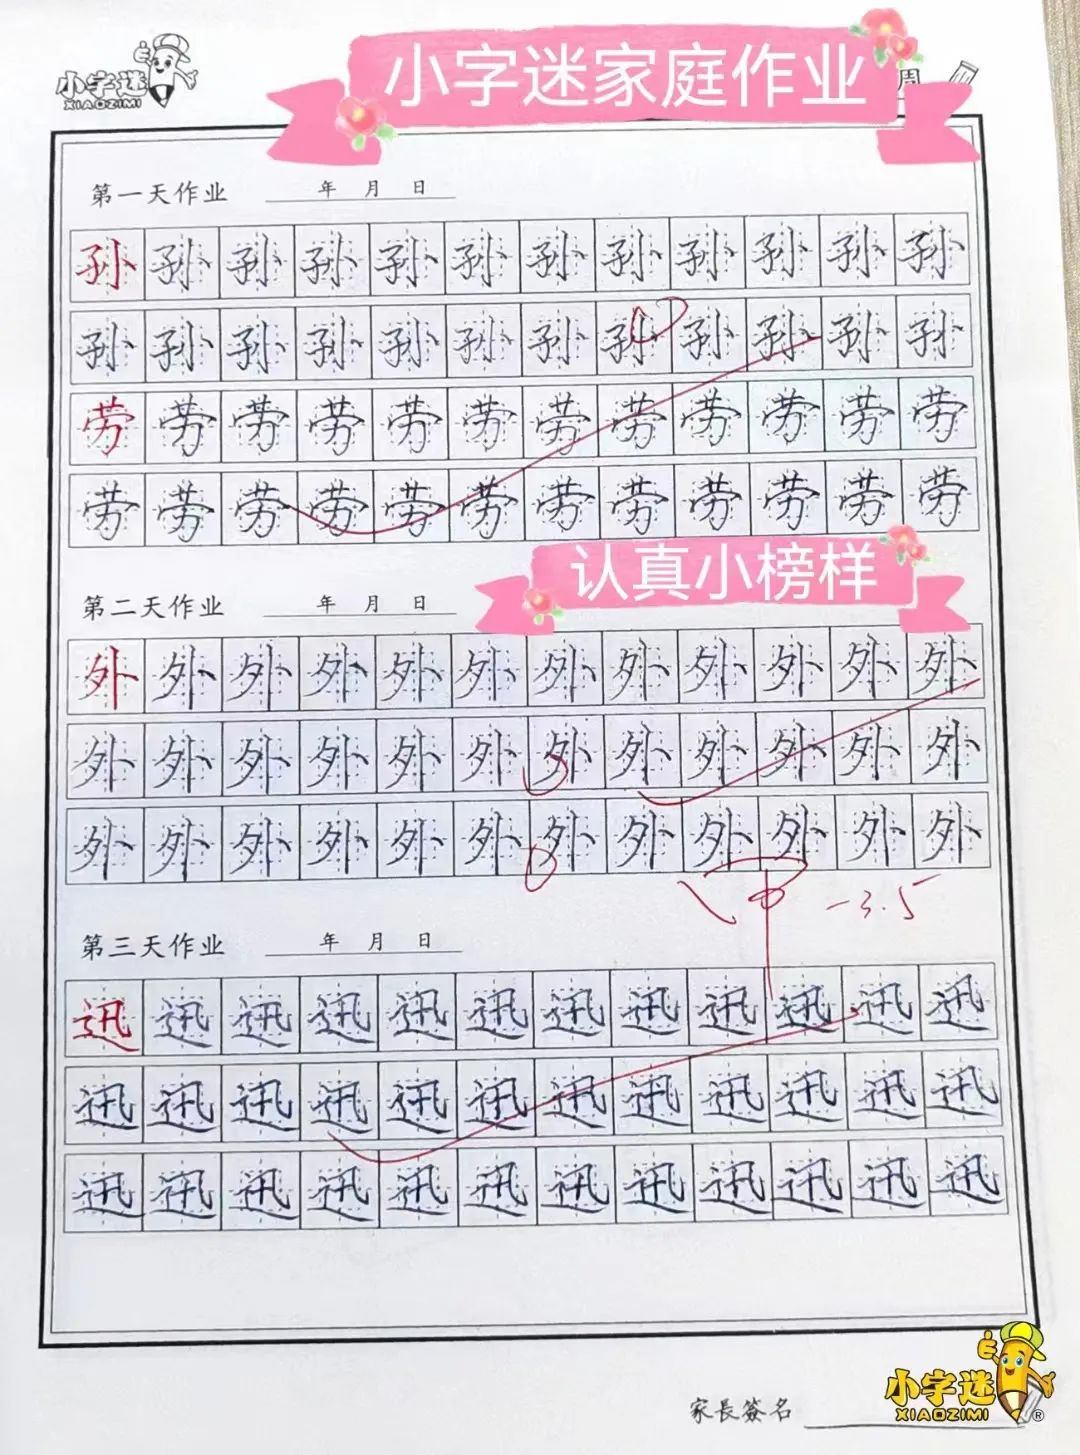 小字迷
XIAOZIMI
小字迷家庭作业
周
第一天作业 年 月 日
孙孙孙孙孙孙孙孙孙孙孙孙
孙孙孙孙孙孙孙孙孙孙孙孙
劳劳劳劳劳劳劳劳劳劳劳劳
劳劳劳劳劳劳劳劳劳劳劳劳
认真小榜样
第二天作业 年 月 日
外外外外外外外外外外外外
外外外外外外外外外外外外
外外外外外外外外外外外外
-3.5
第三天作业 年 月 日
迅迅迅迅迅迅迅迅迅迅迅迅
迅迅迅迅迅迅迅迅迅迅迅迅
迅迅迅迅迅迅迅迅迅迅迅迅
小字迷
XIAOZIMI®
家長簽名